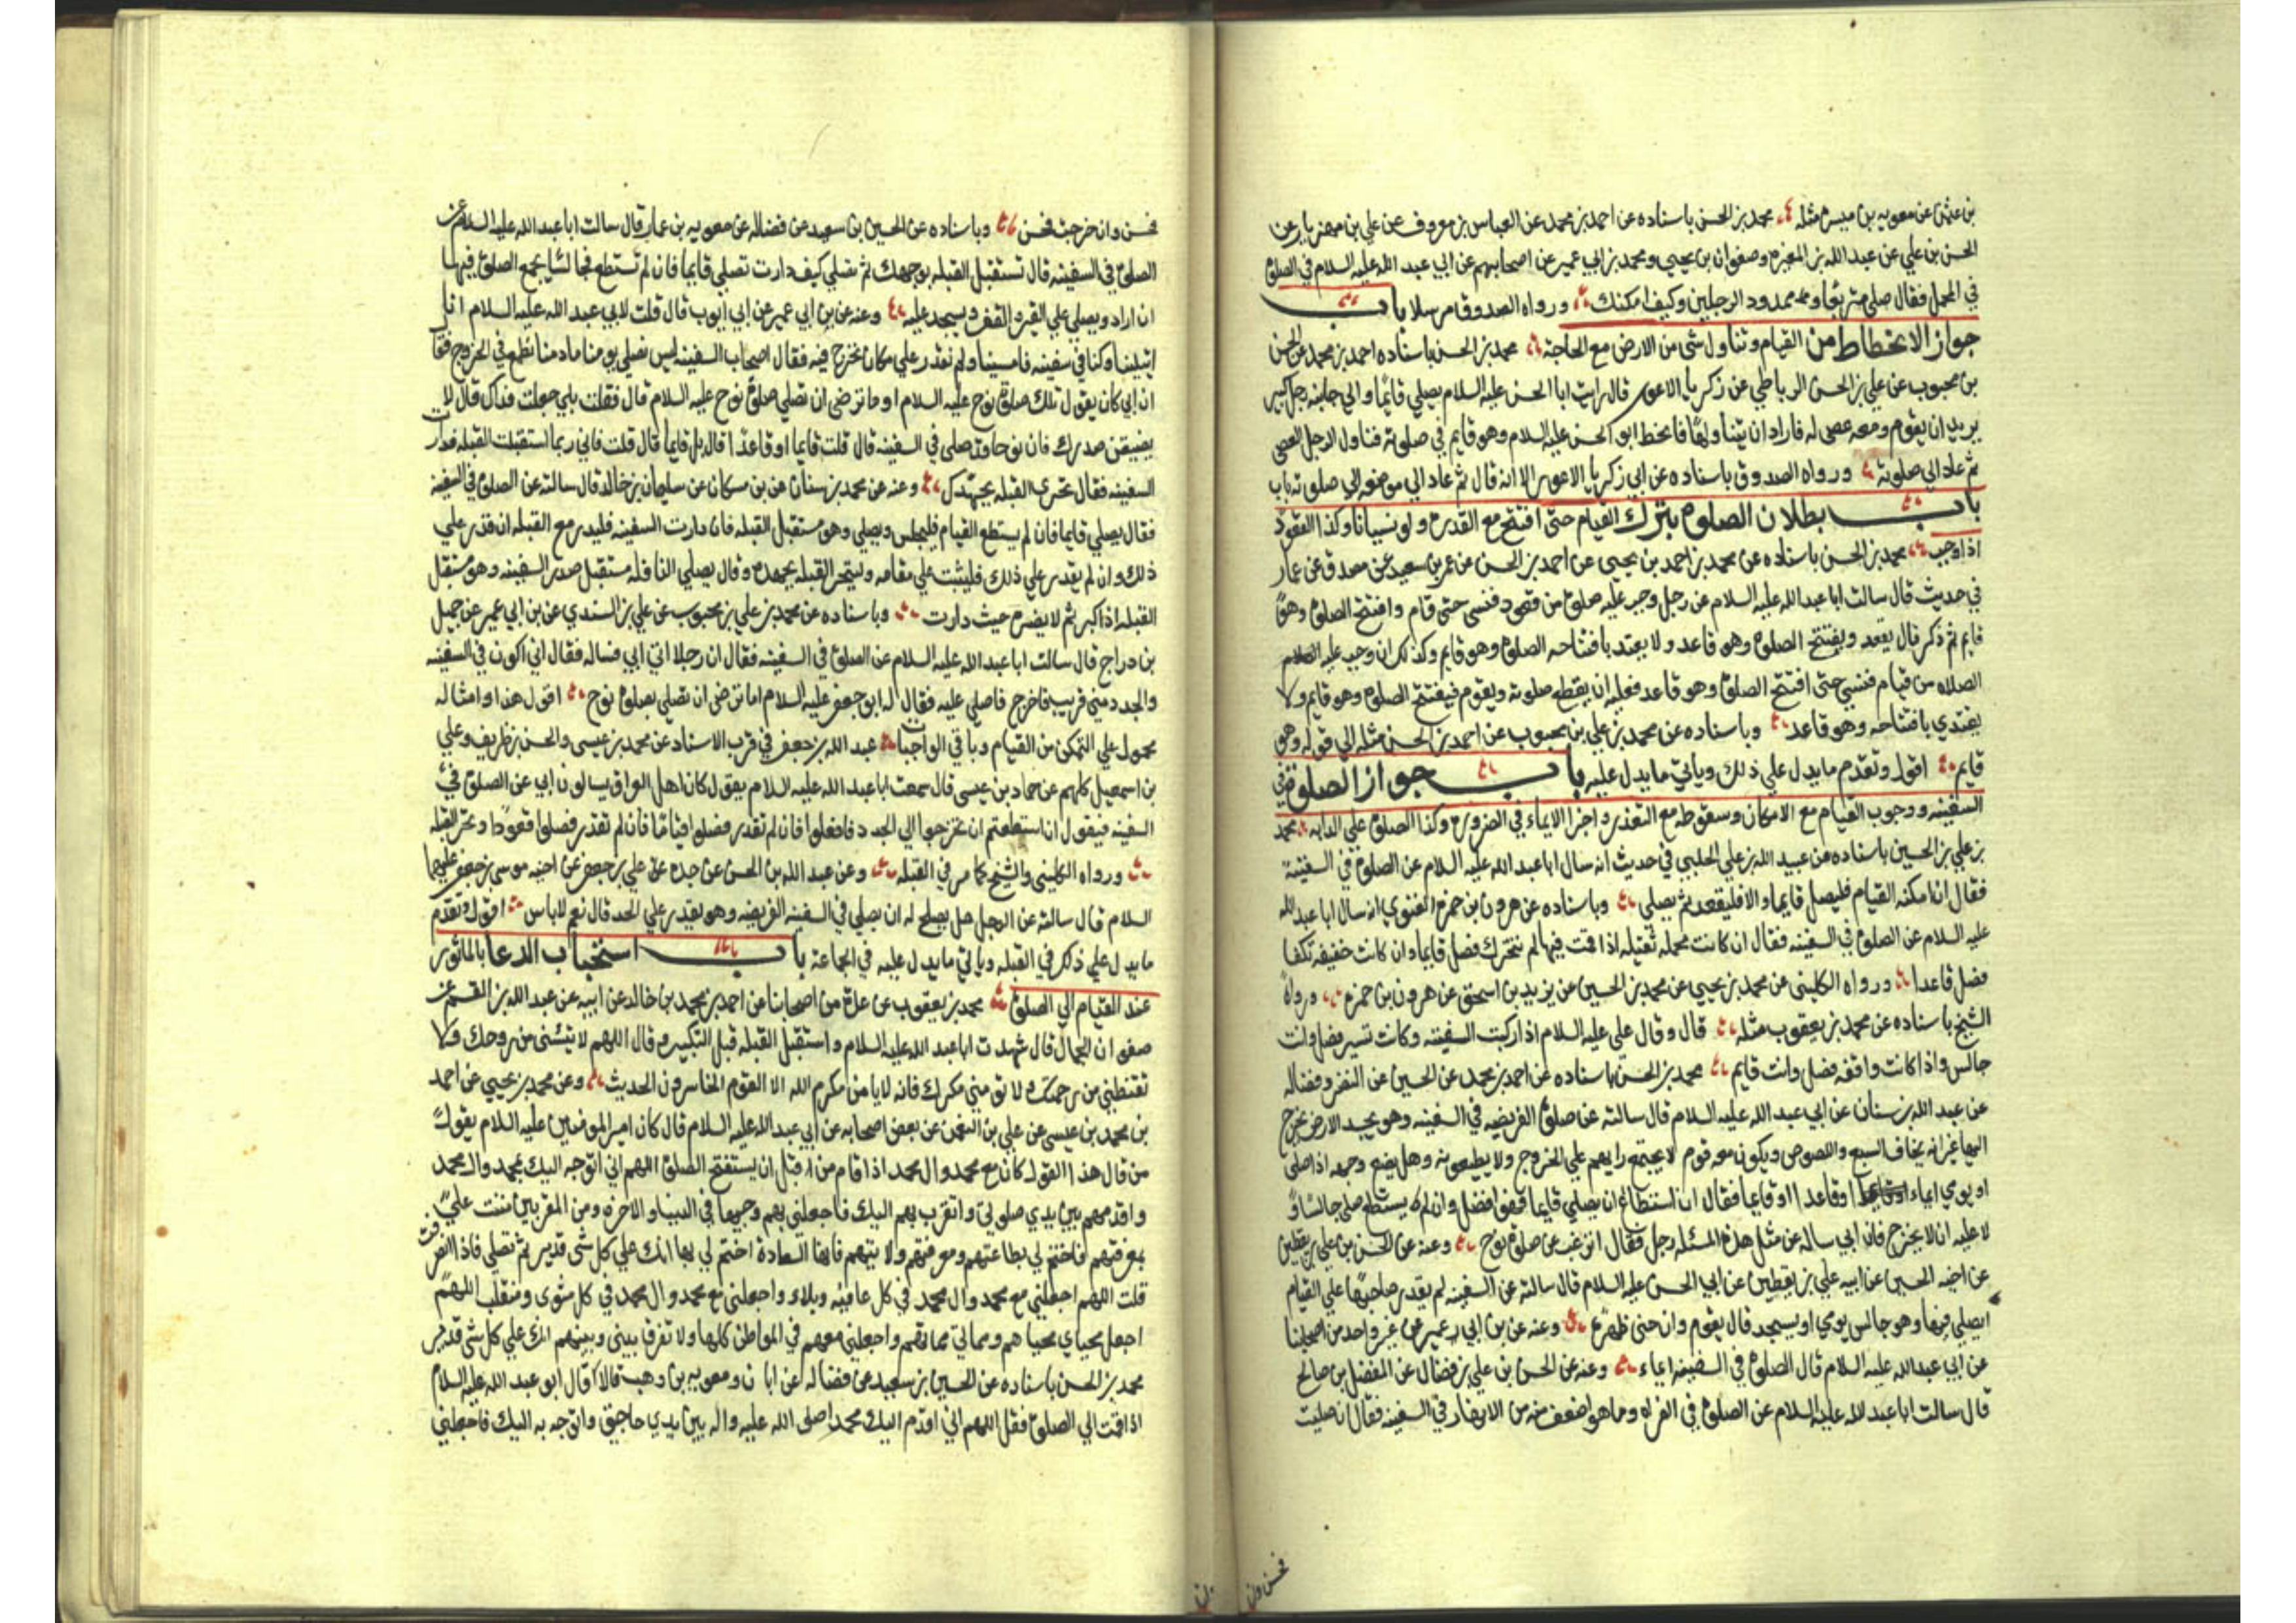 بن عثمن عن معويه بن ميسره مثله محمد بن الحسن باسناده عن احمد بن محمد عن العباس بن معروف عن علي بن مهزيار عن
الحسن بن علي عن عبد الله بن المغيره وصفوان بن يحيى ومحمد بن ابي عمير عن اصحابهم عن ابي عبد الله عليه السلام في الصلوة
في المحمل فقال صلي متربعا وممدود الرجلين وكيف امكنك ورواه الصدوق مرسلا باب
جواز الانحطاط من القيام وتناول شى من الارض مع الحاجة محمد بن الحسن باسناده احمد بن محمد عن الحسن
بن محبوب عن علي بن الحسن الرباطي عن زكريا الاعور قال رايت ابا الحسن عليه السلام يصلي قائما والى جانبه رجل كبير
يريد ان يقوم ومعه عصى له فاراد ان يتناولها فانحط ابو الحسن عليه السلام وهو قايم في صلوته فناول الرجل العصى
ثم عاد الى صلوته ورواه الصدوق باسناده عن ابي زكريا الاعور الا انه قال ثم عاد الى موضعه الى صلوته باب
باب بطلان الصلوة بترك القيام حتى افتتح مع القدرة ولو نسيانا وكذا القعود
اذا وجب محمد بن الحسن باسناده عن محمد بن احمد بن يحيى عن احمد بن الحسن عن عمر بن سعيد عن مصدق عن عمار
في حديث قال سالت ابا عبد الله عليه السلام عن رجل وجب عليه صلوة من قعود فنسى حتى قام وافتتح الصلوة وهو
قايم ثم ذكر قال يقعد ويفتتح الصلوة وهو قاعد ولا يعتد بافتتاحه الصلوة وهو قايم وكذلك ان وجب عليه
الصلاه من قيام فنسي حتى افتتح الصلوة وهو قاعد فعليه ان يقطع صلوته ويقوم فيفتتح الصلوة وهو قايم ولا
يقتدي بافتتاحه وهو قاعد وباسناده عن محمد بن علي بن محبوب عن احمد بن الحسن مثله الى قوله وهو
قايم اقول وتقدم ما يدل على ذلك وياتي ما يدل عليه باب جواز الصلوة في
السفينه ووجوب القيام مع الامكان وسقوطه مع التعذر واجزا الايماء في الضرورة وكذا الصلوة على الدابه محمد
بن علي بن الحسين باسناده عن عبيد الله بن علي الحلبي في حديث انه سال ابا عبد الله عليه السلام عن الصلوة في السفينة
فقال ان امكنه القيام فليصل قايما والا فليقعد ثم يصلي وباسناده عن هرون بن حمزه الغنوي انه سال ابا عبد الله
عليه السلام عن الصلوة في السفينه فقال ان كانت محمله ثقيله اذا قمت فيها لم تتحرك فصل قايما وان كانت خفيفه تكفا
فصل قاعدا ورواه الكلينى عن محمد بن يحيى عن محمد بن الحسين عن يزيد بن اسحق عن هرون بن حمزه ورواه
الشيخ باسناده عن محمد بن يعقوب مثله قال وقال علي عليه السلام اذا ركبت السفينه وكانت تسير فصل وانت
جالس واذا كانت واقفه فصل وانت قايم محمد بن الحسن باسناده عن احمد بن محمد عن الحسين عن النضر وفضاله
عن عبد الله بن سنان عن ابي عبد الله عليه السلام قال سالته عن صلوة الفريضه في السفينه وهو يجد الارض يخرج
اليها غير انه يخاف السبع واللصوص ويكون معه قوم لا يجتمع رايهم على الخروج ولا يطيعونه وهل يضع وجهه اذا صلى
او يومي ايماء او قاعدا او قايما فقال ان استطاع ان يصلي قايما فهو افضل وان لم يستطع صلى جالسا و
لا عليه ان لا يخرج فان ابي ساله عن مثل هذه المسئله رجل فقال اترغب عن صلوة نوح وعنه عن الحسن بن علي بن يقطين
عن اخيه الحسين عن ابيه علي بن يقطين عن ابي الحسن عليه السلام قال سالته عن السفينه لم يقدر صاحبها على القيام
ايصلي فيها وهو جالس يومي او يسجد قال يقوم وان حنى ظهره وعنه عن بن ابي عمير عن غير واحد من اصحابنا
عن ابي عبد الله عليه السلام قال الصلوة في السفينه ايماء وعنه عن الحسن بن علي بن فضال عن المفضل بن صالح
قال سالت ابا عبد الله عليه السلام عن الصلوة في الفراه وما هو اضعف منه من الانهار في السفينه فقال ان صليت
فحسن وان
فحسن وان خرجت فحسن وباسناده عن الحسين بن سعيد عن فضاله عن معويه بن عمار قال سالت ابا عبد الله عليه السلام عن
الصلوة في السفينه قال تستقبل القبله بوجهك ثم تصلي كيف دارت تصلي قايما فان لم تستطع فجالسا يجمع الصلوة فيها
ان اراد ويصلي على القير والقفر ويسجد عليه وعنه عن بن ابي عمير عن ابي ايوب قال قلت لابي عبد الله عليه السلام انا
ابتلينا وكنا في سفينه فامسينا ولم نقدر على مكان نخرج فيه فقال اصحاب السفينه ليس نصلي يومنا ما دمنا نطمع في الخروج فقال
ان ابي كان يقول تلك صلوة نوح عليه السلام او ما ترضى ان تصلي صلوة نوح عليه السلام قال فقلت بلى جعلت فداك قال لا
يضيقن صدرك فان نوحا قد صلى في السفينه قال قلت قايما او قاعدا قال بل قايما قال قلت فاني ربما استقبلت القبله فدارت
السفينه فقال تحرى القبله بجهدك وعنه عن محمد بن سنان عن بن مسكان عن سليمان بن خالد قال سالته عن الصلوة في السفينه
فقال يصلي قايما فان لم يستطع القيام فليجلس ويصلي وهو مستقبل القبله فان دارت السفينه فليدر مع القبله ان قدر على
ذلك وان لم يقدر على ذلك فليثبت على مقامه وليتحر القبله بجهده وقال يصلي النافله مستقبل صدر السفينه وهو مستقبل
القبله اذا كبر ثم لا يضره حيث دارت وباسناده عن محمد بن علي بن محبوب عن علي بن السندي عن بن ابي عمير عن جميل
بن دراج قال سالت ابا عبد الله عليه السلام عن الصلوة في السفينه فقال ان رجلا اتى ابي فساله فقال اني اكون في السفينه
والجدد مني قريب فاخرج فاصلي عليه فقال له ابو جعفر عليه السلام اما ترضى ان تصلي بصلوة نوح اقول هذا وامثاله
محمول على التمكن من القيام وباقي الواجبات عبد الله بن جعفر في قرب الاسناد عن محمد بن عيسى والحسن بن ظريف وعلي
بن اسمعيل كلهم عن حماد بن عيسى قال سمعت ابا عبد الله عليه السلام يقول كان اهل العراق يسالون ابي عن الصلوة في
السفينه فيقول ان استطعتم ان تخرجوا الى الجدد فافعلوا فان لم تقدر فصلوا قياما فان لم تقدر فصلوا قعودا وتحر القبله
ورواه الكليني والشيخ كما مر في القبله وعن عبد الله بن الحسن عن جده عن علي بن جعفر عن اخيه موسى بن جعفر عليهما
السلام قال سالته عن الرجل هل يصلح له ان يصلي في السفينه الفريضه وهو يقدر على الجدد قال نعم لا باس اقول وتقدم
ما يدل على ذلك في القبله وياتي ما يدل عليه في الجماعة باب استحباب الدعا بالماثور
عند القيام الى الصلوة محمد بن يعقوب عن عدة من اصحابنا عن احمد بن محمد بن خالد عن ابيه عن عبد الله بن القسم عن
صفوان الجمال قال شهدت ابا عبد الله عليه السلام واستقبل القبله قبل التكبير وقال اللهم لا تيئسنى من روحك ولا
تقنطني من رحمتك ولا تومني مكرك فانه لا يامن مكر الله الا القوم الخاسرون الحديث وعن محمد بن يحيى عن احمد
بن محمد بن عيسى عن علي بن النعمن عن بعض اصحابه عن ابي عبد الله عليه السلام قال كان امير المومنين عليه السلام يقول
من قال هذا القول كان مع محمد وال محمد اذا قام من قبل ان يستفتح الصلوة اللهم اني اتوجه اليك بمحمد وال محمد
واقدمهم بين يدي صلوتي واتقرب بهم اليك فاجعلني بهم وجيها في الدنيا والاخرة ومن المقربين مننت علي
بمعرفتهم فاختم لي بطاعتهم ومعرفتهم ولايتهم فانها السعادة اختم لي بها انك على كل شى قدير ثم تصلي فاذا انصرفت
قلت اللهم اجعلني مع محمد وال محمد في كل عافيه وبلاء واجعلني مع محمد وال محمد في كل مثوى ومنقلب اللهم
اجعل محياي محياهم ومماتي مماتهم واجعلني معهم في المواطن كلها ولا تفرق بيني وبينهم انك على كل شى قدير
محمد بن الحسن باسناده عن الحسين بن سعيد عن فضاله عن ابان ومعويه بن وهب قالا قال ابو عبد الله عليه السلام
اذا قمت الى الصلوة فقل اللهم اني اقدم اليك محمدا صلى الله عليه واله بين يدي حاجتي واتوجه به اليك فاجعلني